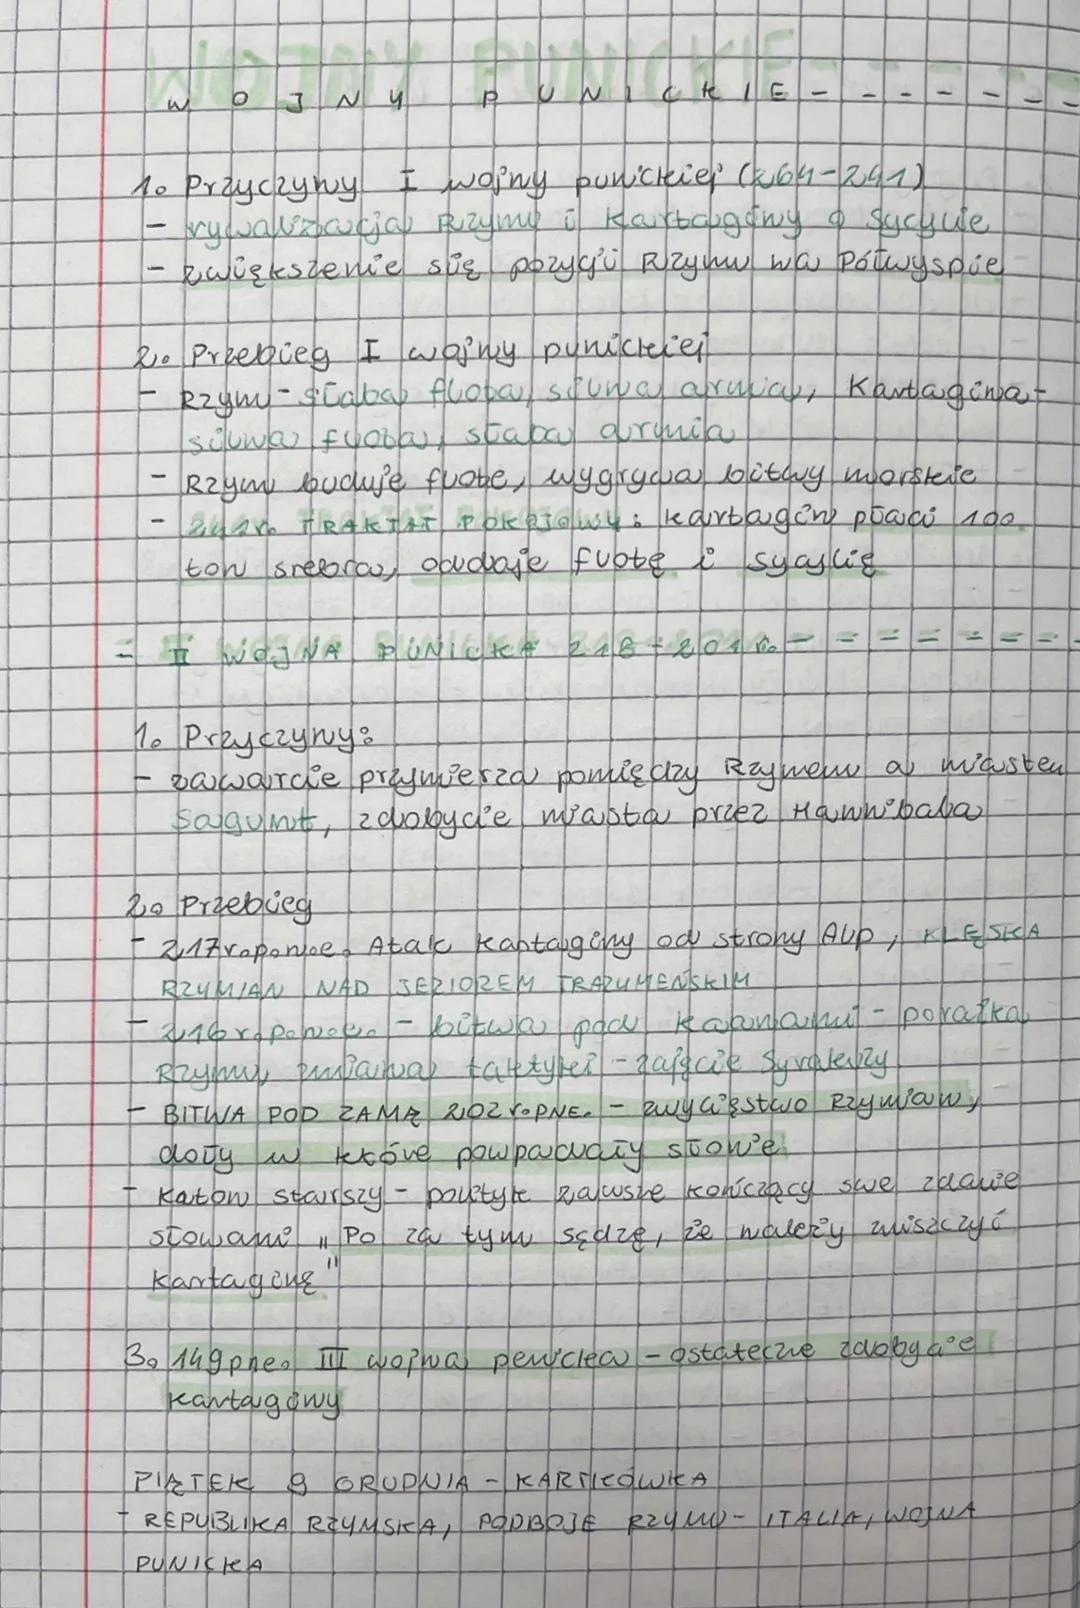 WOJNY PUNICKIE - - - - - - -
1. Przyczyny I wojny punickiej (264-241)
- rywalizacja Rzymu i Kartaginy o Sycylie
- zwiększenie się pozycji Rzymu na Półwyspie
2. Przebieg I wojny punickiej
- Rzym - słaba flota, silna armia, Kartagina -
silna flota, słaba armia
- Rzym buduje flote, wygrywa bitwy morskie
- 241r. TRAKTAT POKOJOWY: Kartagina płaci 100
ton srebra, oddaje flotę i Sycylię
= II WOJNA PUNICKA 218-201r. = = = = = = =
1. Przyczyny:
- zawarcie przymierza pomiędzy Rzymem a miastem
Sagunt, zdobycie miasta przez Hannibala
2. Przebieg
- 217r.p.n.e. Atak Kartaginy od strony Alp, KLĘSKA
RZYMIAN NAD JEZIOREM TRAZUMEŃSKIM
- 216r.p.n.e. - bitwa pod Kannami - porażka
Rzymu, zmiana taktyki - zajęcie Syrakuzy
- BITWA POD ZAMĄ 202r.PNE. - zwycięstwo Rzymian,
doły w które powpadały słonie
- Katon starszy - polityk zawsze kończący swe zdanie
słowami "Po za tym sądzę, że należy zniszczyć
Kartaginę"
3. 149pne. III wojna penicka - ostateczne zdobycie
Kartaginy
PIĄTEK 9 GRUDNIA - KARTKÓWKA
- REPUBLIKA RZYMSKA, PODBOJE RZYMU - ITALIA, WOJNA
PUNICKA